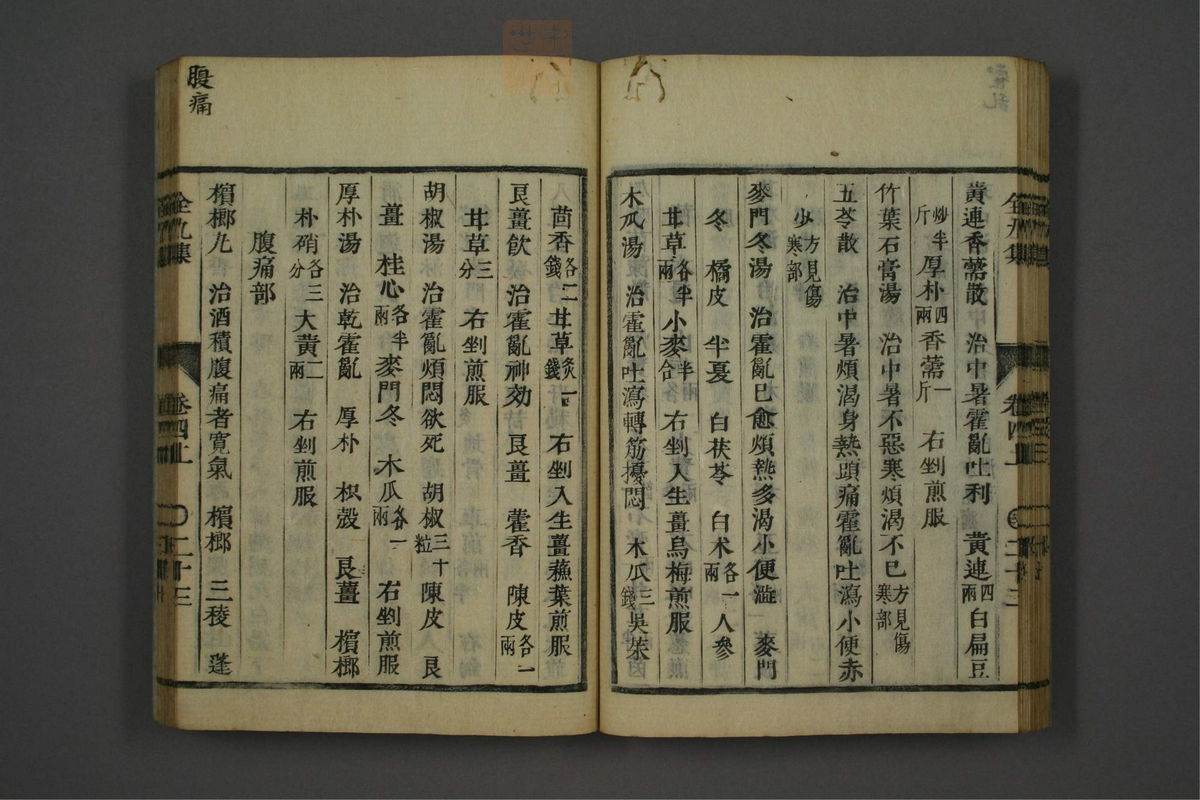 黃連香薷散 治中暑霍亂吐利 黃連四兩 白扁豆
炒半斤 厚朴四兩 香薷一斤 右剉煎服
竹葉石膏湯 治中暑不惡寒煩渴不已 方見傷寒部
五苓散 治中暑煩渴身熱頭痛霍亂吐瀉小便赤
少 方見傷寒部
麥門冬湯 治霍亂已愈煩熱多渴小便澁 麥門
冬 橘皮 半夏 白茯苓 白术各一兩 人參
甘草各半兩 小麥半合 右剉入生薑烏梅煎服
木瓜湯 治霍亂吐瀉轉筋擾悶 木瓜三錢 吳茱
茴香各二錢 甘草炙一錢 右剉入生薑蘓葉煎服
良薑飲 治霍亂神効 良薑 藿香 陳皮各一兩
甘草三分 右剉煎服
胡椒湯 治霍亂煩悶欲死 胡椒三十粒 陳皮 良
薑 桂心各半兩 麥門冬 木瓜各一兩 右剉煎服
厚朴湯 治乾霍亂 厚朴 枳殼 良薑 檳榔
朴硝各三分 大黃二兩 右剉煎服
腹痛部
檳榔丸 治酒積腹痛者寬氣 檳榔 三稜 蓬
全九集 卷四上 二十三
腹痛